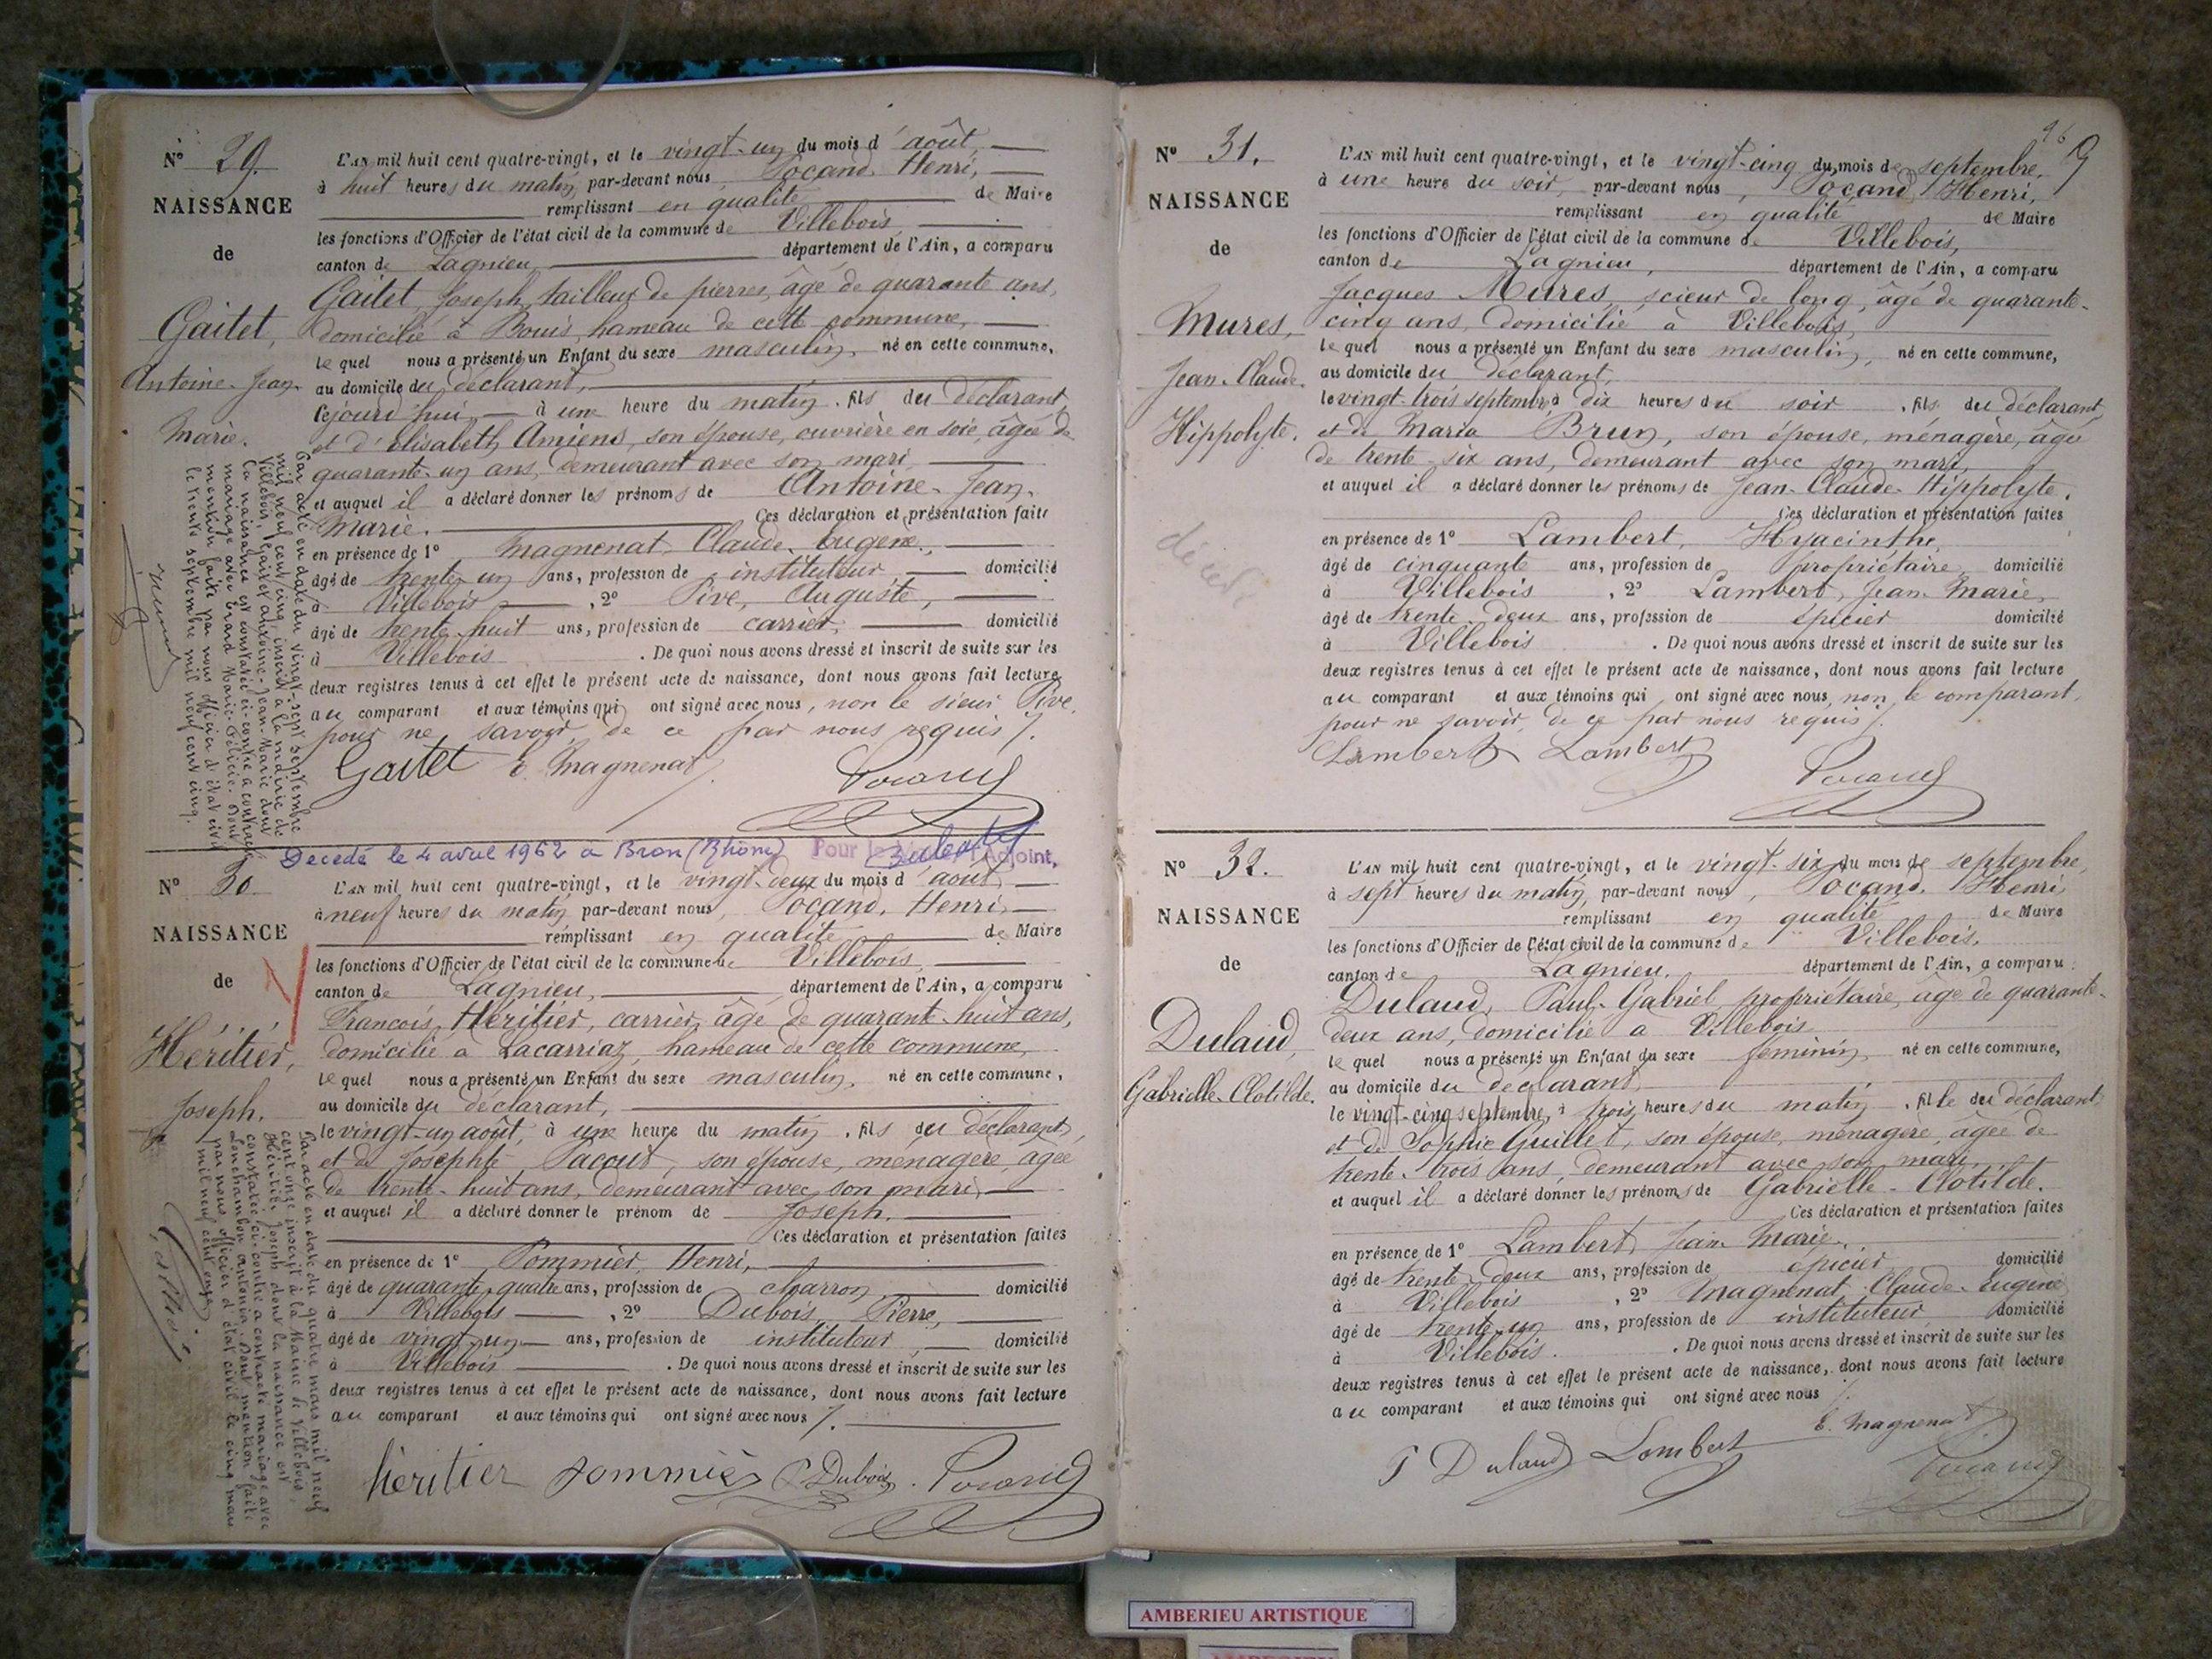 N° 29.
NAISSANCE
de
Gaitet,
Antoine-Jean-
Marie.
L'AN mil huit cent quatre-vingt, et le vingt-un du mois d'août,
à huit heures du matin, par-devant nous, Pocand, Henri,
remplissant en qualité de Maire
les fonctions d'Officier de l'état civil de la commune de Villebois,
canton de Lagnieu, département de l'Ain, a comparu
Gaitet, Joseph, tailleur de pierres, âgé de quarante ans,
domicilié à Bouis, hameau de cette commune,
lequel nous a présenté un Enfant du sexe masculin, né en cette commune,
au domicile du déclarant,
cejourd'hui, à une heure du matin, fils du déclarant,
et d'Elisabeth Amiend, son épouse, ouvrière en soie, âgée de
quarante-un ans, demeurant avec son mari,
et auquel il a déclaré donner les prénoms de Antoine-Jean-
Marie. Ces déclaration et présentation faites
en présence de 1° Magnenat, Claude-Eugène,
âgé de trente-un ans, profession de instituteur domicilié
à Villebois, 2° Pive, Auguste,
âgé de trente-huit ans, profession de carrier, domicilié
à Villebois. De quoi nous avons dressé et inscrit de suite sur les
deux registres tenus à cet effet le présent acte de naissance, dont nous avons fait lecture
au comparant et aux témoins qui ont signé avec nous, non le sieur Pive,
pour ne savoir, de ce par nous requis /.
Gaitet E. Magnenat Pocand
Par acte en date du vingt-sept septembre
mil neuf cent cinq, inscrit à la mairie de
Villebois, Gaitet Antoine-Jean-Marie dont
la naissance est constatée ci-contre a contracté
mariage avec Grand Marie-Félicie. Dont
mention faite par nous officier d'état civil
le trente septembre mil neuf cent cinq.
Décédé le 4 avril 1962 à Bron (Rhône) Pour le Maire, l'Adjoint,
N° 30
NAISSANCE
de
Héritier,
Joseph.
L'AN mil huit cent quatre-vingt, et le vingt-deux du mois d'août,
à neuf heures du matin, par-devant nous, Pocand, Henri,
remplissant en qualité de Maire
les fonctions d'Officier de l'état civil de la commune de Villebois,
canton de Lagnieu, département de l'Ain, a comparu
François Héritier, carrier, âgé de quarante-huit ans,
domicilié à Lacarriaz, hameau de cette commune,
lequel nous a présenté un Enfant du sexe masculin, né en cette commune,
au domicile du déclarant,
le vingt-un août, à une heure du matin, fils du déclarant,
et de Josephte Pacout, son épouse, ménagère, âgée
de trente-huit ans, demeurant avec son mari,
et auquel il a déclaré donner le prénom de Joseph.
Ces déclaration et présentation faites
en présence de 1° Pommier, Henri,
âgé de quarante-quatre ans, profession de charron, domicilié
à Villebois, 2° Dubois, Pierre,
âgé de vingt-un ans, profession de instituteur domicilié
à Villebois. De quoi nous avons dressé et inscrit de suite sur les
deux registres tenus à cet effet le présent acte de naissance, dont nous avons fait lecture
au comparant et aux témoins qui ont signé avec nous /.
héritier Pommier P. Dubois. Pocand
Par acte en date du quatre mars mil neuf
cent onze inscrit à la Mairie de Villebois,
Héritier Joseph dont la naissance est
constatée ci-contre a contracté mariage avec
Antonia. Dont mention faite
par nous officier d'état civil le cinq mars
mil neuf cent onze.
96 9
N° 31.
NAISSANCE
de
Mures,
Jean-Claude-
Hippolyte.
décédé
L'AN mil huit cent quatre-vingt, et le vingt-cinq du mois de septembre,
à une heure du soir, par-devant nous, Pocand, Henri,
remplissant en qualité de Maire
les fonctions d'Officier de l'état civil de la commune de Villebois,
canton de Lagnieu, département de l'Ain, a comparu
Jacques Mures, scieur de long, âgé de quarante-
cinq ans, domicilié à Villebois,
lequel nous a présenté un Enfant du sexe masculin, né en cette commune,
au domicile du déclarant,
le vingt-trois septembre, à dix heures du soir, fils du déclarant,
et de Maria Brun, son épouse, ménagère, âgée
de trente-six ans, demeurant avec son mari,
et auquel il a déclaré donner les prénoms de Jean-Claude-Hippolyte.
Ces déclaration et présentation faites
en présence de 1° Lambert, Hyacinthe,
âgé de cinquante ans, profession de propriétaire, domicilié
à Villebois, 2° Lambert, Jean-Marie,
âgé de trente-deux ans, profession de épicier domicilié
à Villebois. De quoi nous avons dressé et inscrit de suite sur les
deux registres tenus à cet effet le présent acte de naissance, dont nous avons fait lecture
au comparant et aux témoins qui ont signé avec nous, non le comparant,
pour ne savoir, de ce par nous requis /.
Lambert Lambert
Pocand
N° 32.
NAISSANCE
de
Dulaud,
Gabrielle-Clotilde.
L'AN mil huit cent quatre-vingt, et le vingt-six du mois de septembre,
à sept heures du matin, par-devant nous, Pocand, Henri,
remplissant en qualité de Maire
les fonctions d'Officier de l'état civil de la commune de Villebois,
canton de Lagnieu, département de l'Ain, a comparu
Dulaud, Paul-Gabriel, propriétaire, âgé de quarante-
deux ans, domicilié à Villebois
lequel nous a présenté un Enfant du sexe féminin, né en cette commune,
au domicile du déclarant,
le vingt-cinq septembre, à trois heures du matin, fille du déclarant,
et de Sophie Guillet, son épouse, ménagère, âgée de
trente-trois ans, demeurant avec son mari,
et auquel il a déclaré donner les prénoms de Gabrielle-Clotilde.
Ces déclaration et présentation faites
en présence de 1° Lambert, Jean-Marie,
âgé de trente-deux ans, profession de épicier domicilié
à Villebois, 2° Magnenat, Claude-Eugène
âgé de trente-un ans, profession de instituteur domicilié
à Villebois. De quoi nous avons dressé et inscrit de suite sur les
deux registres tenus à cet effet le présent acte de naissance, dont nous avons fait lecture
au comparant et aux témoins qui ont signé avec nous /.
P Dulaud Lambert E. Magnenat
Pocand
AMBERIEU ARTISTIQUE